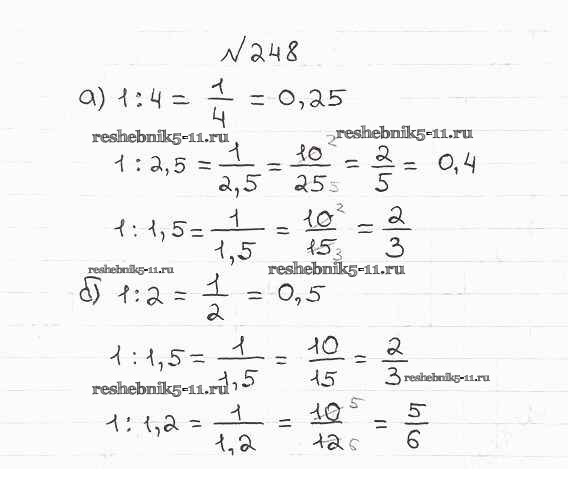 №248
а) 1 : 4 = 1/4 = 0,25
reshebnik5-11.ru reshebnik5-11.ru
1 : 2,5 = 1/2,5 = 10 2/25 5 = 2/5 = 0,4
1 : 1,5 = 1/1,5 = 10 2/15 3 = 2/3
reshebnik5-11.ru reshebnik5-11.ru
б) 1 : 2 = 1/2 = 0,5
1 : 1,5 = 1/1,5 = 10/15 = 2/3
reshebnik5-11.ru reshebnik5-11.ru
1 : 1,2 = 1/1,2 = 10 5/12 6 = 5/6